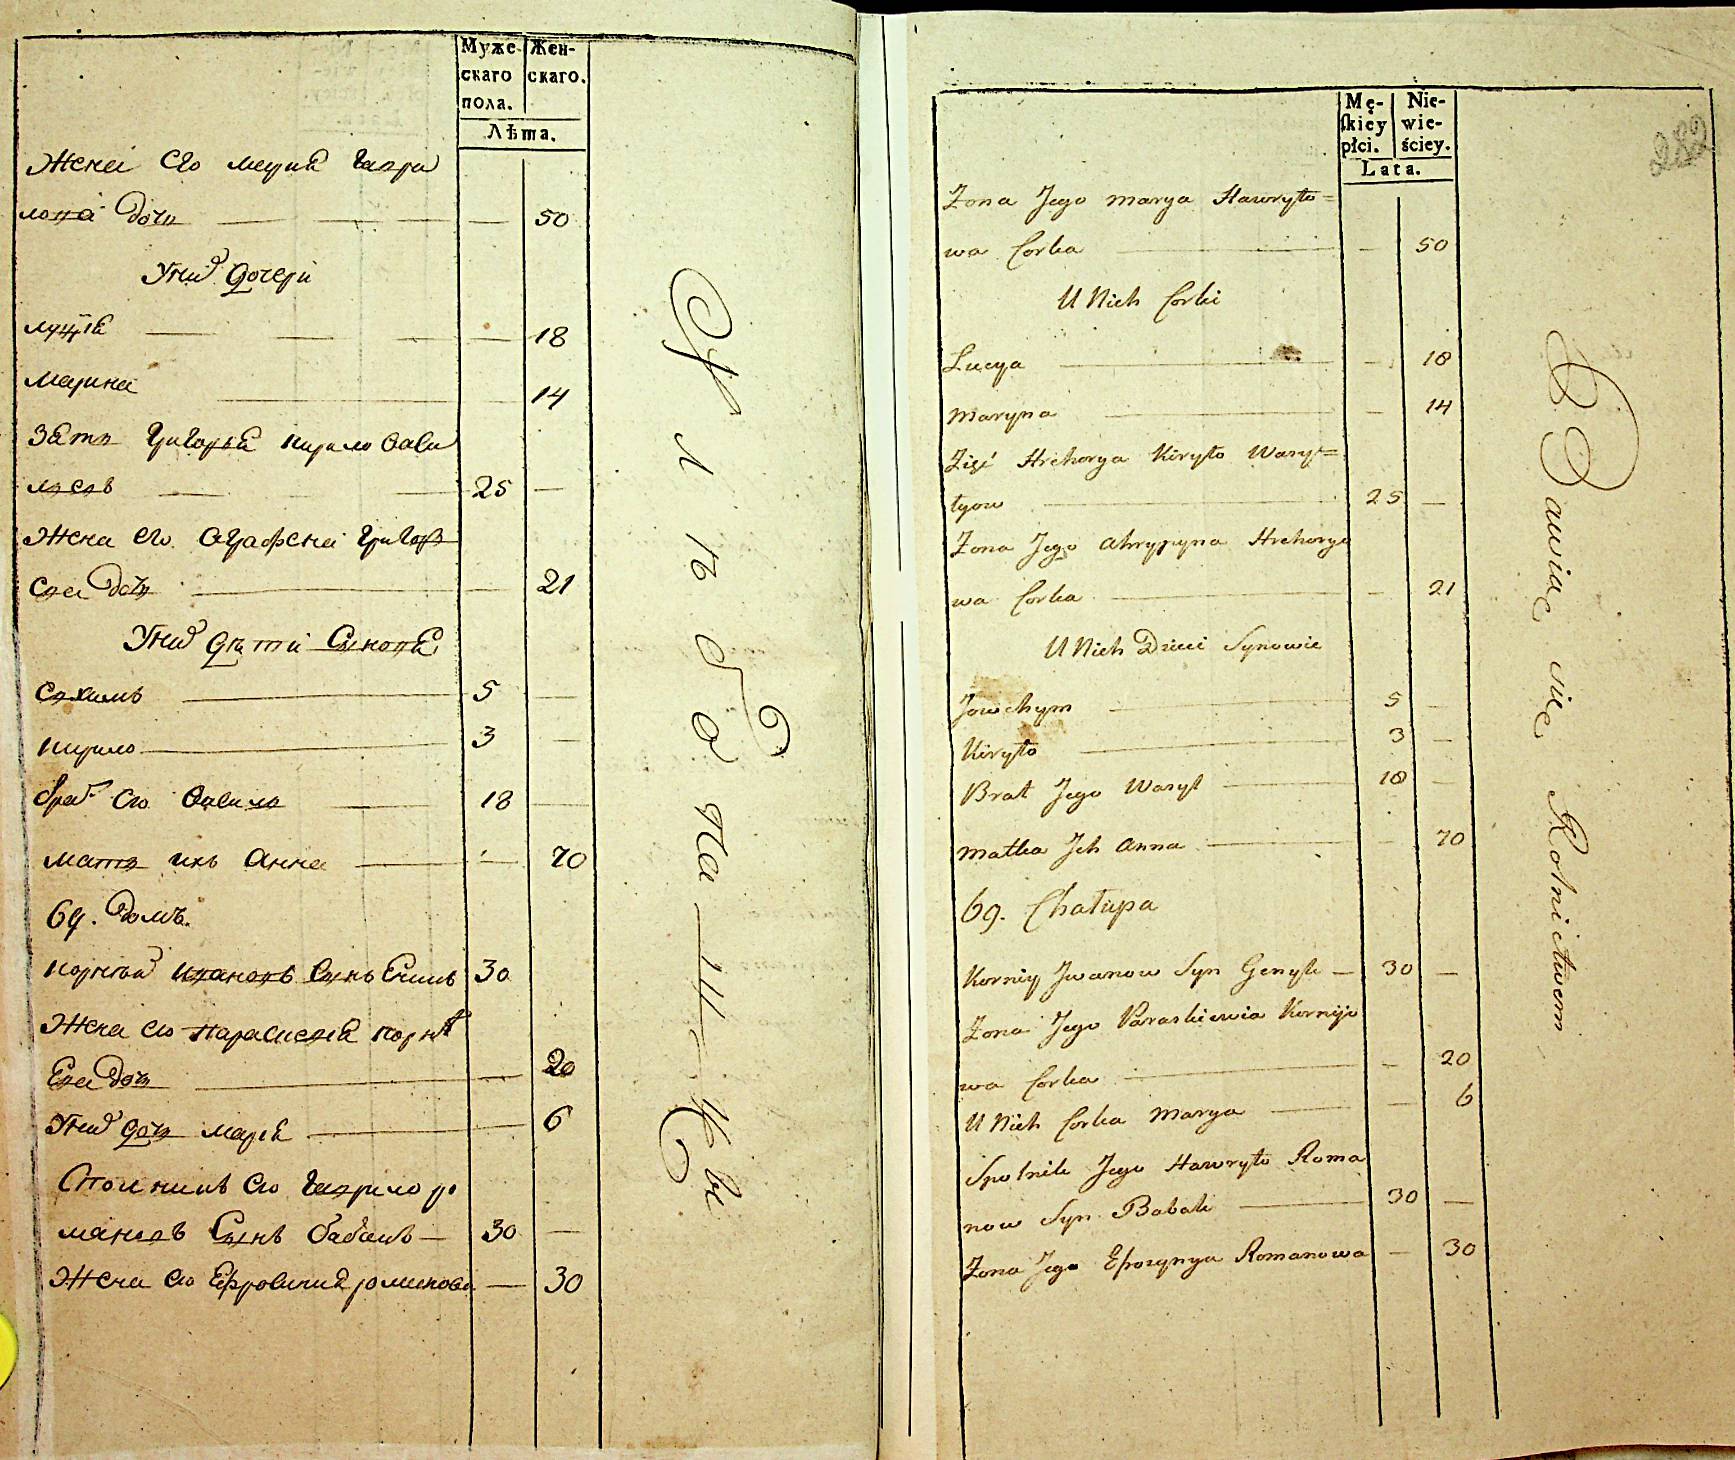 Муже-
скаго
пола.
Жен-
скаго.
Лѣта.
Жена его Марья Гаври
лова дочь — 50
У них дочери
Луция — 18
Марина — 14
Зять Григорей Кирило Васи
лєвъ — 25 —
Жена его Аграфена Григорь
ева дочь — 21
У них дѣти Сыновя
Евхимъ 5 —
Кирило 3 —
брат его Василь 18 —
Мать ихъ Анна — 70
69. домъ.
Корней Ивановъ Сынъ 30
Жена его Параскевия Корнѣ
ева дочь — 20
У них дочь Марья — 6
его Гаврило Ро
мановъ Сынъ Бабакъ — 30 —
Жена его Ефросиния Романова — 30
Хлѣбопашцы
Mę-
skiey
płci.
Nie-
wie-
ściey.
Lata.
282
Żona Jego Marya Hawryło=
wa Corka — 50
U Nich Corki
Lucya — 18
Maryna — 14
Zięć Hrehorya Kiryło Wasy=
lyow 25 —
Żona Jego Ahrypyna Hrehorye
wa Corka — 21
U Nich Dzieci Synowie
Jowchym 5 —
Kiryło 3 —
Brat Jego Wasyl 18 —
Matka Jch Anna — 70
69. Chałupa
Korniy Jwanow Syn Genyk — 30 —
Żona Jego Paraskiewia Kornije
wa Corka — 20
U Nich Corka Marya — 6
Spolnik Jego Hawryło Roma
now Syn Babak 30 —
Żona Jego Efrozynya Romanowa — 30
Bawiąc się Rolnictwem